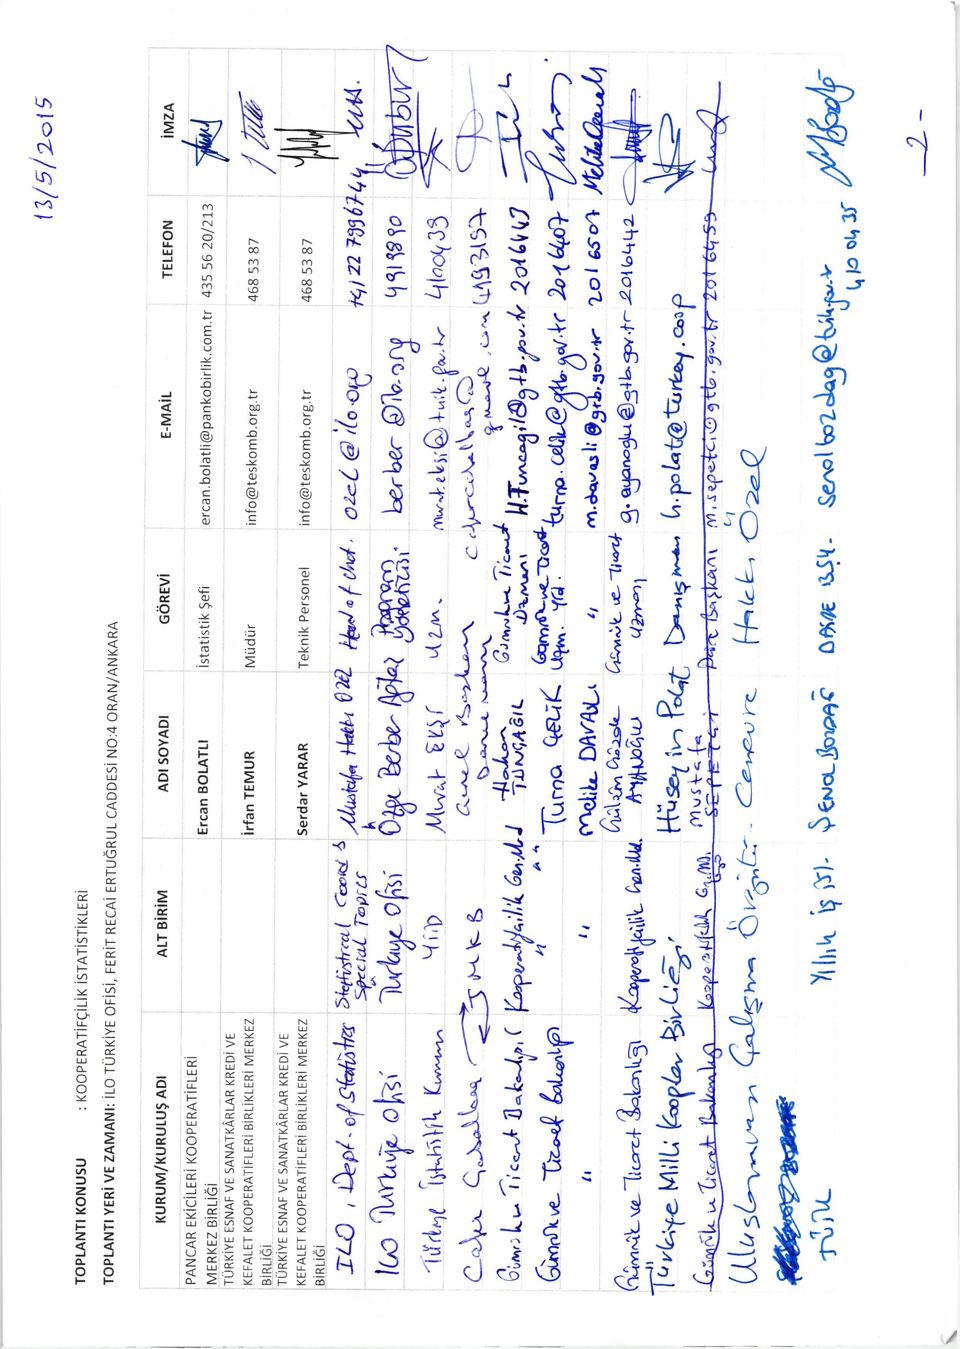 13/5/2015
TOPLANTI KONUSU : KOOPERATİFÇİLİK İSTATİSTİKLERİ
TOPLANTI YERİ VE ZAMANI: İLO TÜRKİYE OFİSİ, FERİT RECAİ ERTUĞRUL CADDESİ NO:4 ORAN/ANKARA
KURUM/KURULUŞ ADI ALT BİRİM ADI SOYADI GÖREVİ E-MAİL TELEFON İMZA
PANCAR EKİCİLERİ KOOPERATİFLERİ
MERKEZ BİRLİĞİ Ercan BOLATLI İstatistik Şefi ercan.bolatli@pankobirlik.com.tr 435 56 20/213
TÜRKİYE ESNAF VE SANATKÂRLAR KREDİ VE
KEFALET KOOPERATİFLERİ BİRLİKLERİ MERKEZ
BİRLİĞİ İrfan TEMUR Müdür info@teskomb.org.tr 468 53 87
TÜRKİYE ESNAF VE SANATKÂRLAR KREDİ VE
KEFALET KOOPERATİFLERİ BİRLİKLERİ MERKEZ
BİRLİĞİ Serdar YARAR Teknik Personel info@teskomb.org.tr 468 53 87
ILO, Dept. of Statistics Statistical Special Topics Mustafa Hakkı Özel Head of Unit. ozel@ilo.org +41 22 7996744
ILO Türkiye Ofisi Türkiye Ofisi Özge Berber Ağtaş Program Yöneticisi. berber@ilo.org 4919890
Türkiye İstatistik Kurumu YİİD Murat EKŞİ Uzm. murat.eksi@tuik.gov.tr 4100439
4193157
Gümrük ve Ticaret Bakanlığı Kooperatifçilik Gen.Md Hakan TUNÇAĞIL Gümrük ve Ticaret Uzmanı H.Tuncagil@gtb.gov.tr 2016443
Gümrük ve Ticaret Bakanlığı " " Turna ÇELİK Gümrük ve Ticaret Uzm. Yrd. turna.celik@gtb.gov.tr 2016407
" " Melike DAVASLI " m.davasli@gtb.gov.tr 2016507
Gümrük ve Ticaret Bakanlığı Kooperatifçilik Gen.Md. Gülsüm Gözde AYANOĞLU Gümrük ve Ticaret Uzmanı g.ayanoglu@gtb.gov.tr 2016442
Türkiye Milli Kooperatifler Birliği Hüseyin Polat Danışman h.polat@turkey.coop
Gümrük ve Ticaret Bakanlığı Kooperatifçilik Gn.Md. Mustafa SEPETÇİ Daire Başkanı m.sepetci@gtb.gov.tr 2016459
Uluslararası Çalışma Örgütü - Cenevre Hakkı Özel
TÜİK Yıllık iş ist. ŞENOL BOZDAĞ DAİRE BŞK. senolbozdag@tuik.gov.tr 410 04 35
2 -